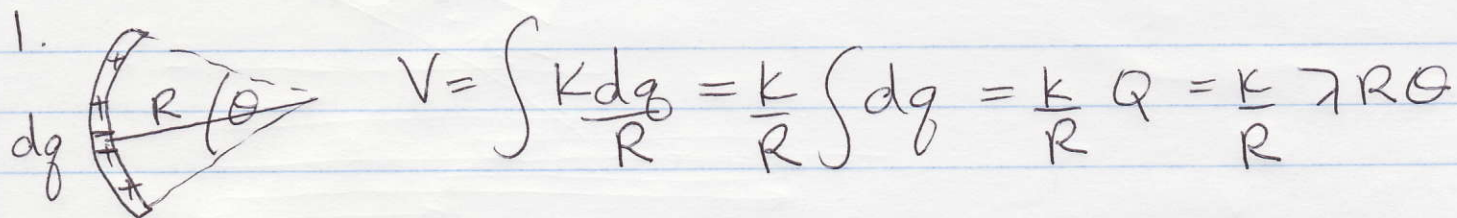 1.
dq + + + + R θ V = ∫ K dq / R = k / R ∫ dq = k / R Q = k / R λ R θ